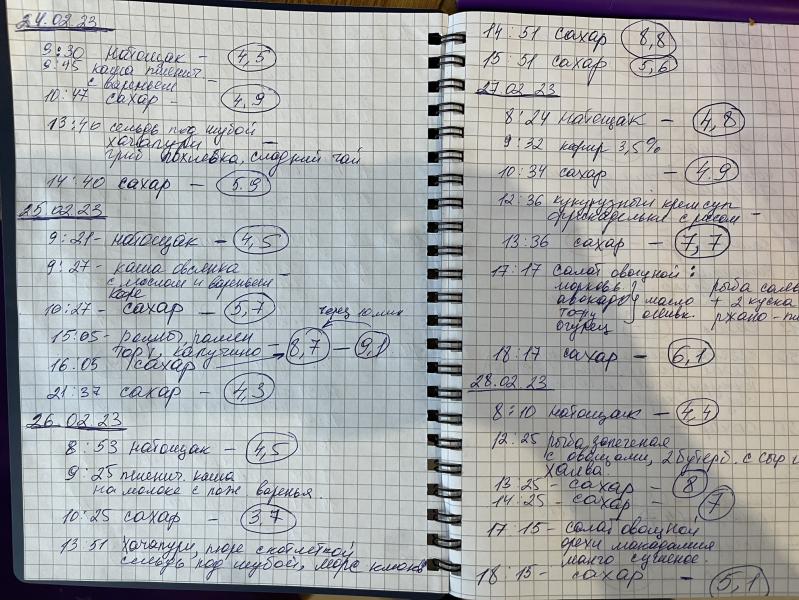 24.02.23
9:30 натощак - 4,5
9:45 каша пшенич. -
с вареньем
10:47 сахар - 4,9
13:46 сельдь под шубой
хачапури -
гриб похлебка, сладкий чай
14:40 сахар - 5.9
25.02.23
9:21- натощак - 4,5
9:27- каша овсянка -
с маслом и вареньем
кофе
10:27- сахар - 5,7
через 10 мин
15:05- роллы, рамен
торт, капучино - 8,7 - 9,1
16.05 сахар
21:37 сахар - 4,3
26.02.23
8:53 натощак - 4,5
9:25 пшенич. каша
на молоке с лож варенья.
10:25 сахар - 3,7
13:51 хачапури, пюре с котлеткой
сельдь под шубой, морс клюкв
14:51 сахар 8,8
15:51 сахар 5,6
27.02.23
8:24 натощак - 4,8
9:32 кефир 3,5%
10:34 сахар - 4.9
12:36 кукурузный крем суп
фрикадельки с рисом -
13:36 сахар - 7,7
17:17 салат овощной: рыба
морковь
авокадо масло + 2 куска
тофу оливк. ржано-
огурец
18:17 сахар - 6,1
28.02.23
8:10 натощак - 4,4
12:25 рыба запеченая
с овощами, 2 бутерб. с сыр
халва.
13:25- сахар - 8
14:25- сахар - 7
17:15- салат овощной
орехи макадамия
манго сушеное.
18:15- сахар - 5,1